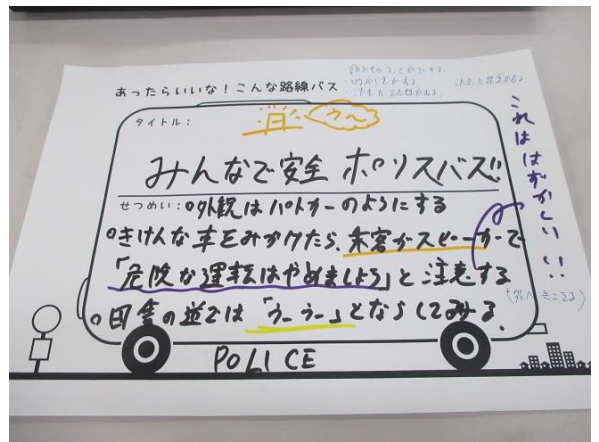 あったらいいな！こんな路線バス
タイトル：
うー
みんなで安全 ポリスバス!!
せつめい：○外観はパトカーのようにする
○きけんな車をみかけたら、乗客がスピーカーで
「危険な運転はやめましょう」と注意する
○田舎の道では「うーうー」とならしてみる。
POLICE
これははずかしい!!
(外へきこえる)